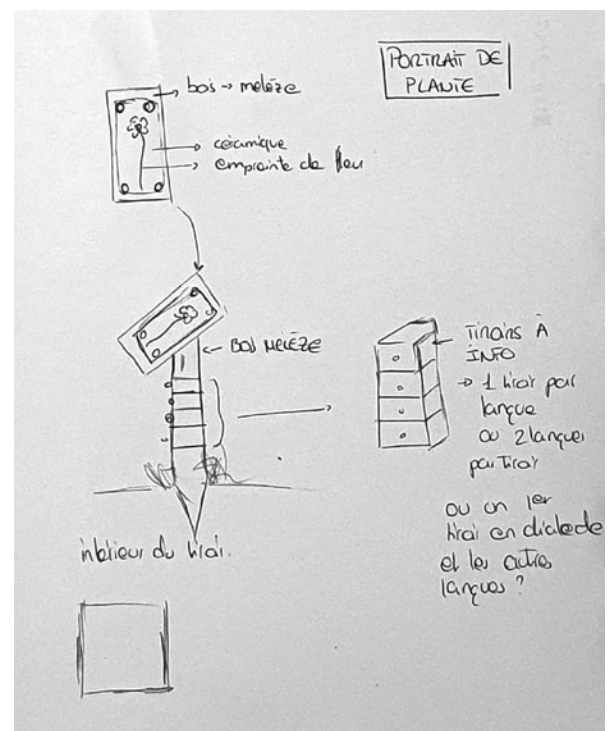 PORTRAIT DE
PLANTE
bois → mélèze
céramique
empreinte de fleur
BOIS MÉLÈZE
TIROIRS À
INFO
→ 1 tiroir par
langue
ou 2 langues
par tiroir
ou un 1er
tiroir en dialecte
et les autres
langues ?
intérieur du tiroir.